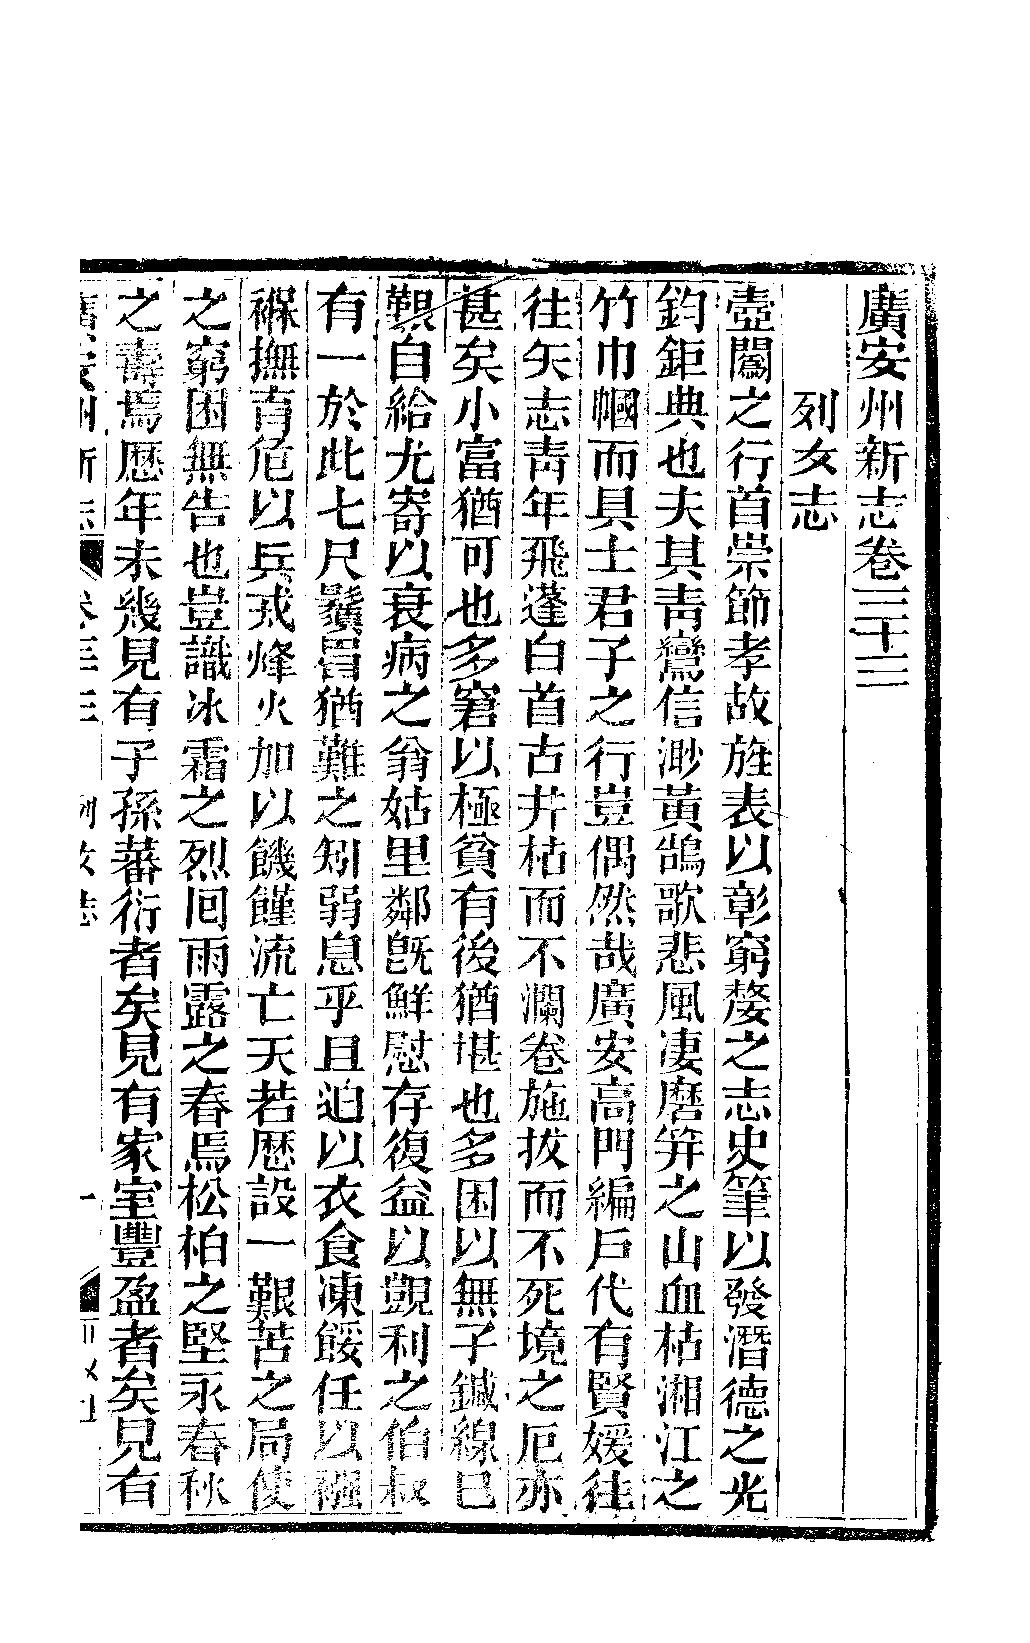 廣安州新志卷三十三
列女志
壼闈之行首崇節孝故旌表以彰窮嫠之志史筆以發潛德之光
鈞鉅典也夫其靑鸞信渺黃鵠歌悲風凄磨笄之山血枯湘江之
竹巾幗而具士君子之行豈偶然哉廣安高門編戶代有賢媛往
往矢志靑年飛蓬白首古井枯而不瀾卷施拔而不死境之厄亦
甚矣小富猶可也多窘以極貧有後猶堪也多困以無子鍼線已
艱自給尤寄以衰病之翁姑里鄰旣鮮慰存復益以覬利之伯叔
有一於此七尺鬚眉猶難之矧弱息乎且迫以衣食凍餒任以襁
褓撫育危以兵戎烽火加以饑饉流亡天若歷設一艱苦之局使
之窮困無告也豈識冰霜之烈囘雨露之春焉松柏之堅永春秋
之壽焉歷年未幾見有子孫蕃衍者矣見有家室豐盈者矣見有
廣安州新志 卷三三 列女志 一